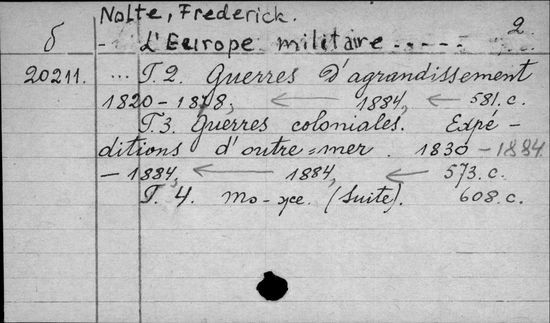 Nolte, Frederick.
2.
б - L'Europe militaire - - - - -
20211. ... T. 2. Guerres D'agrandissement
1820-1878, ← 1884, ← 581. c.
T. 3. Guerres coloniales. Expé-
ditions d'outre=mer. 1830 - 1884.
- 1884, ← 1884, ← 573. c.
T. 4. то-же. (Suite). 608. c.